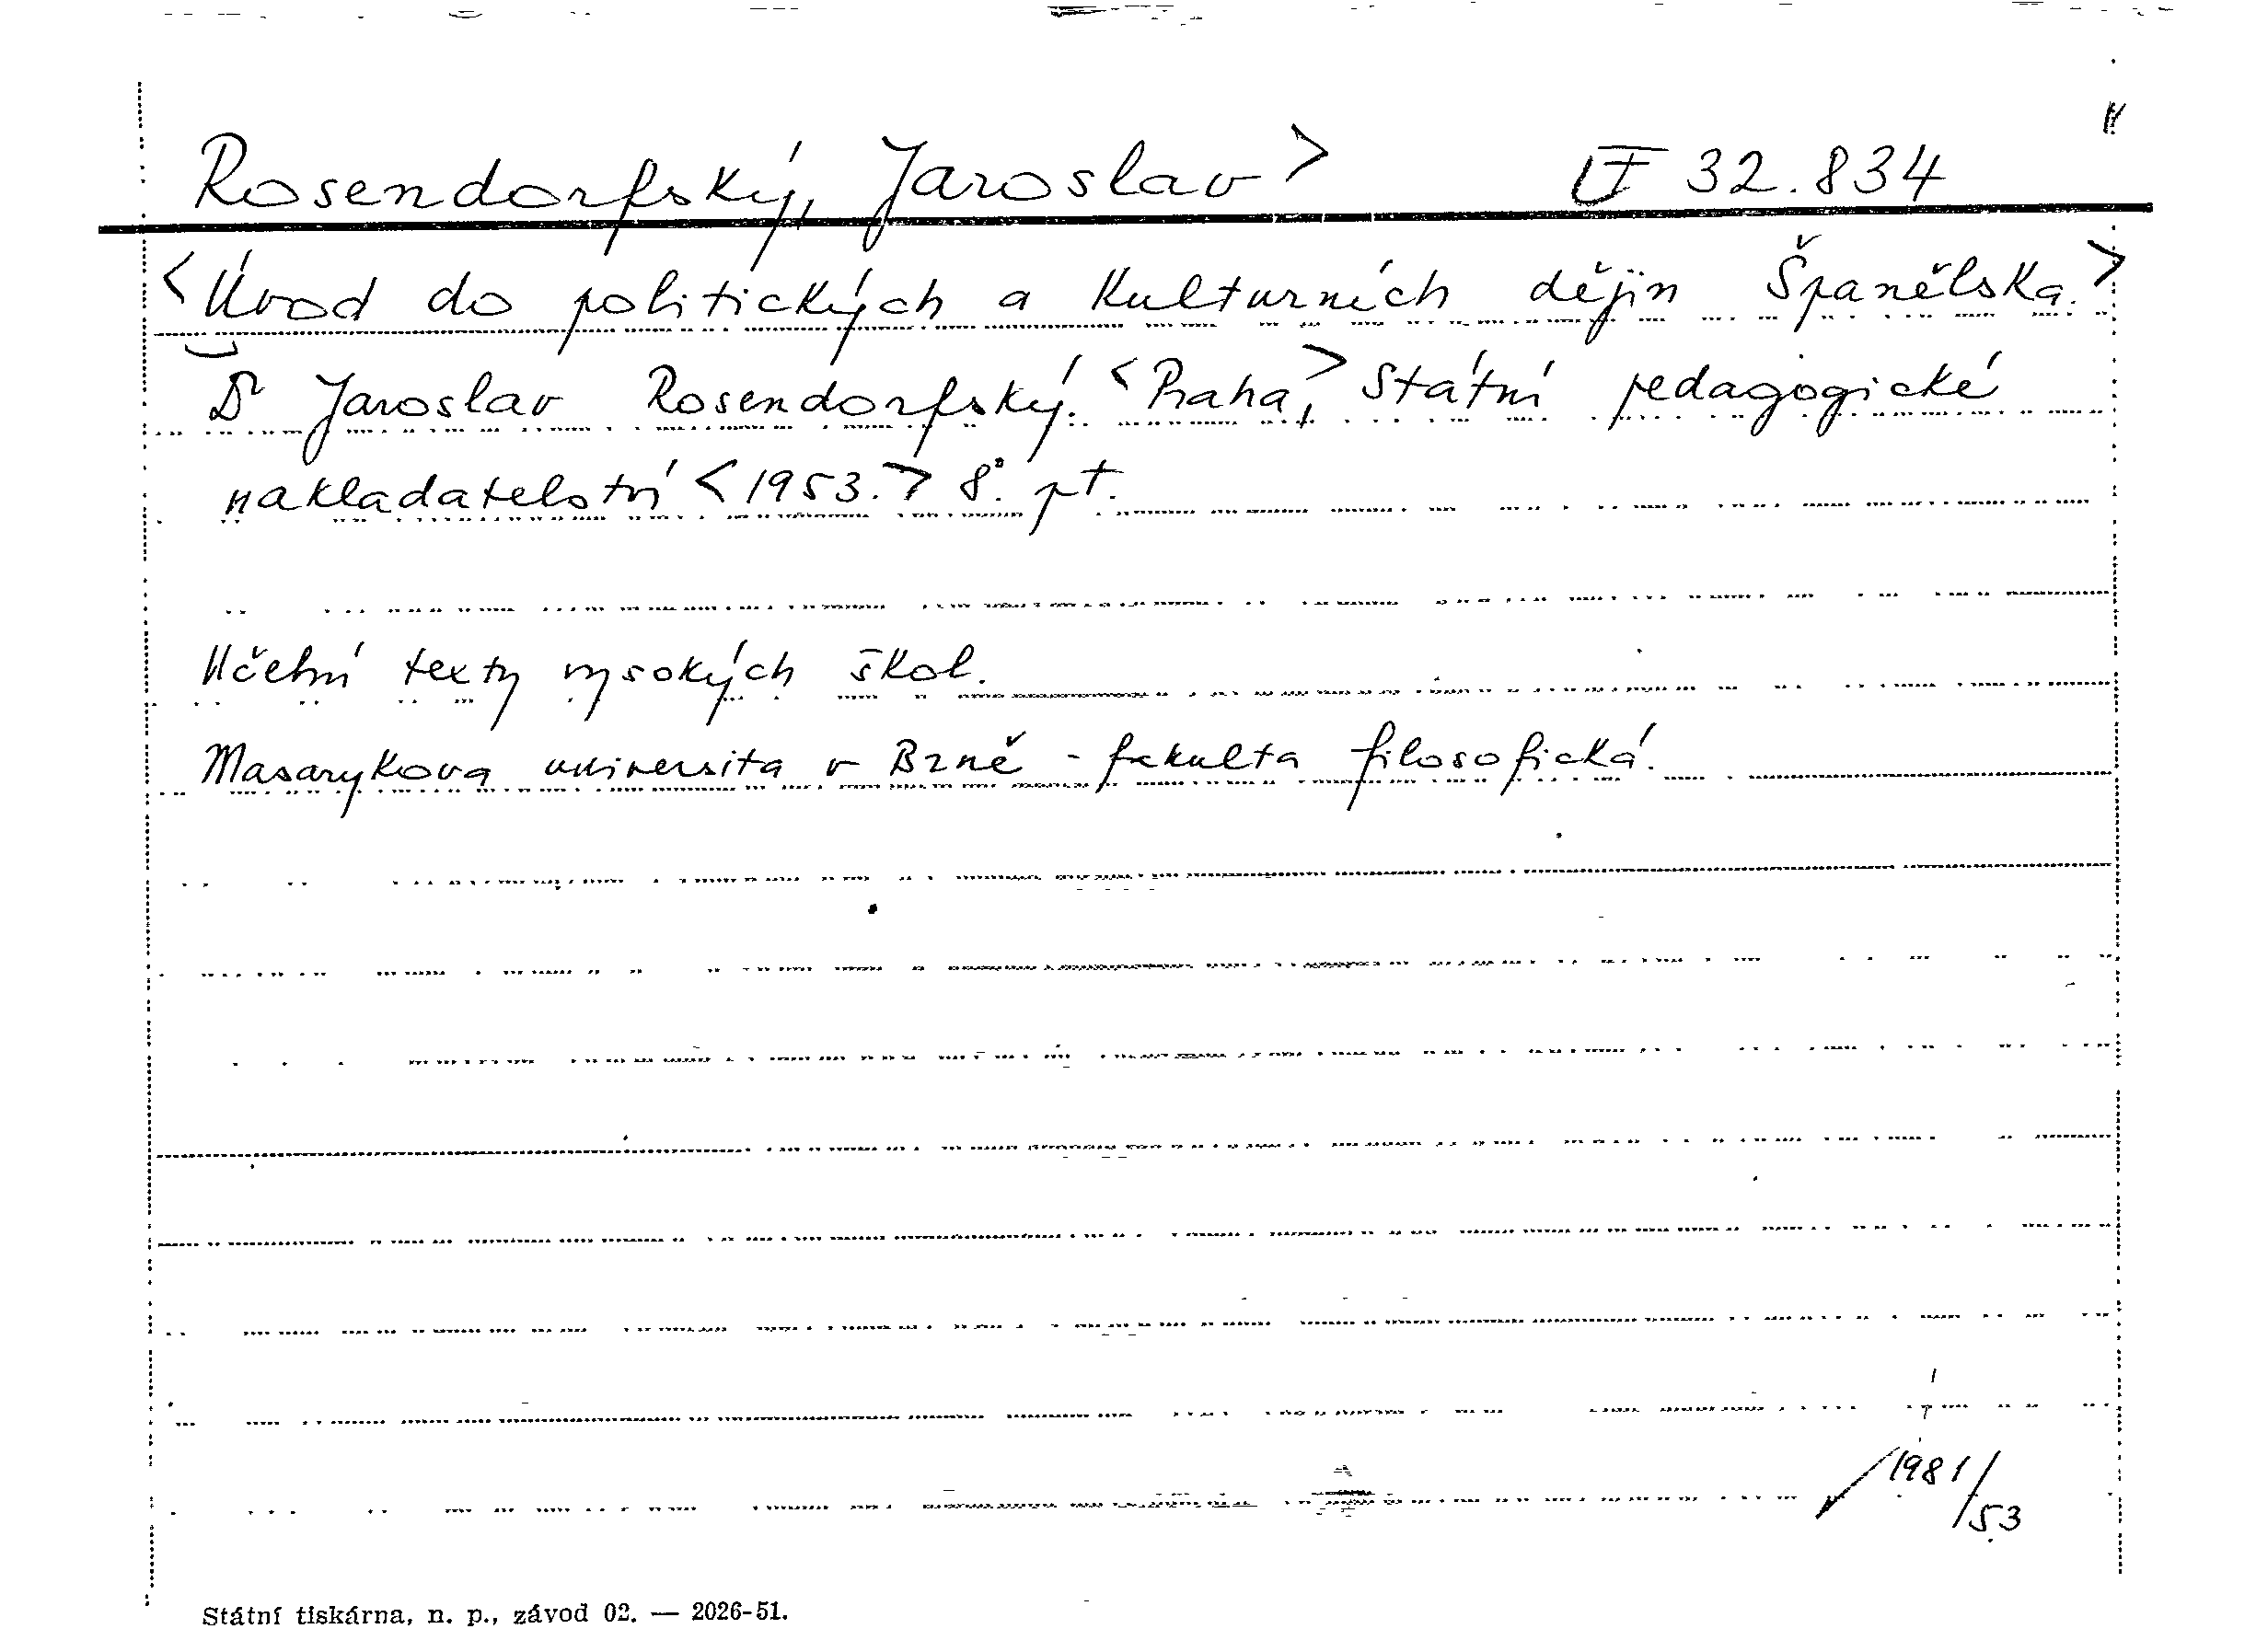 Rosendorfský, Jaroslav> II 32.834
<Úvod do politických a kulturních dějin Španělska.>
Dr Jaroslav Rosendorfský. <Praha,> Státní pedagogické
nakladatelství <1953.> 8°. pt.
Učební texty vysokých škol.
Masarykova universita v Brně - fakulta filosofická.
1981/53
Státní tiskárna, n. p., závod 02. — 2026-51.